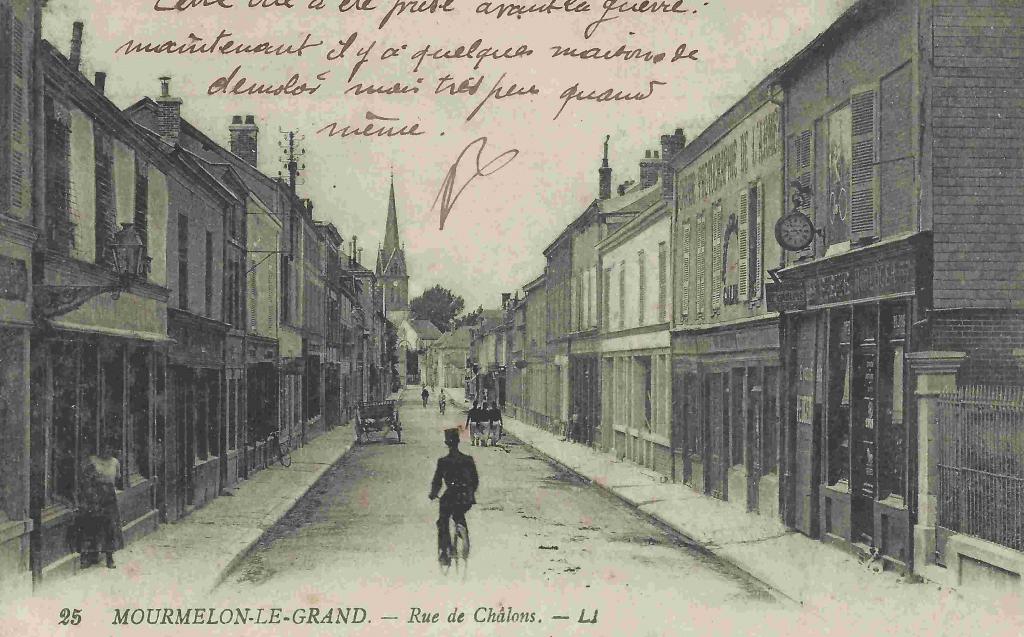 Cette vue a été prise avant la guerre.
maintenant il y a quelques maisons de
demolós mais très peu quand
même.
25 MOURMELON-LE-GRAND. — Rue de Châlons. — LL